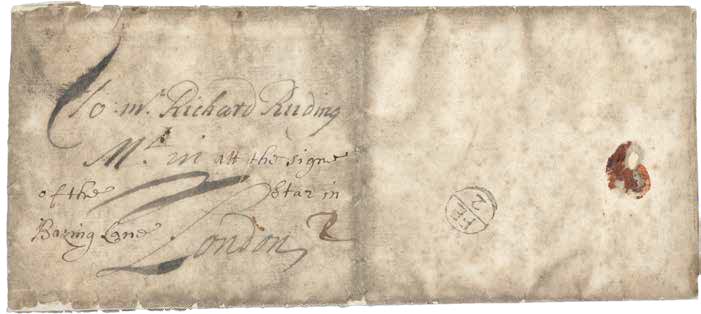 To: mr. Richard Ruding
Mt. in att the signe
of the Star in
Bazing Lane
London 2
FE
2